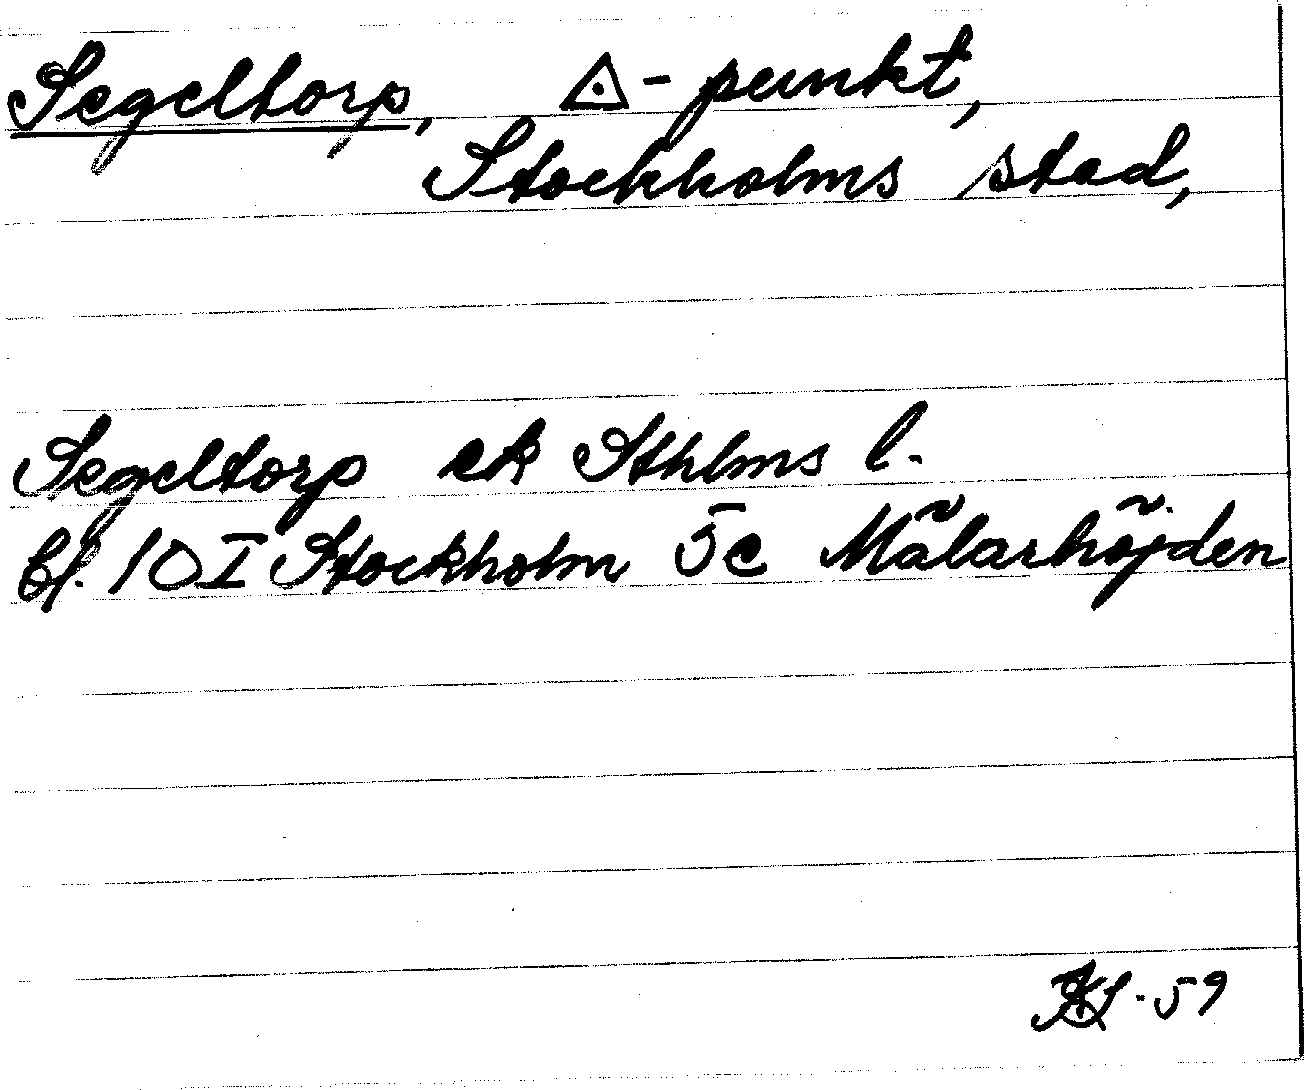 Segeltorp, △-punkt,
Stockholms stad,
Segeltorp ek Sthlms l.
bl. 10 I Stockholm 5c Mälarhöjden
59